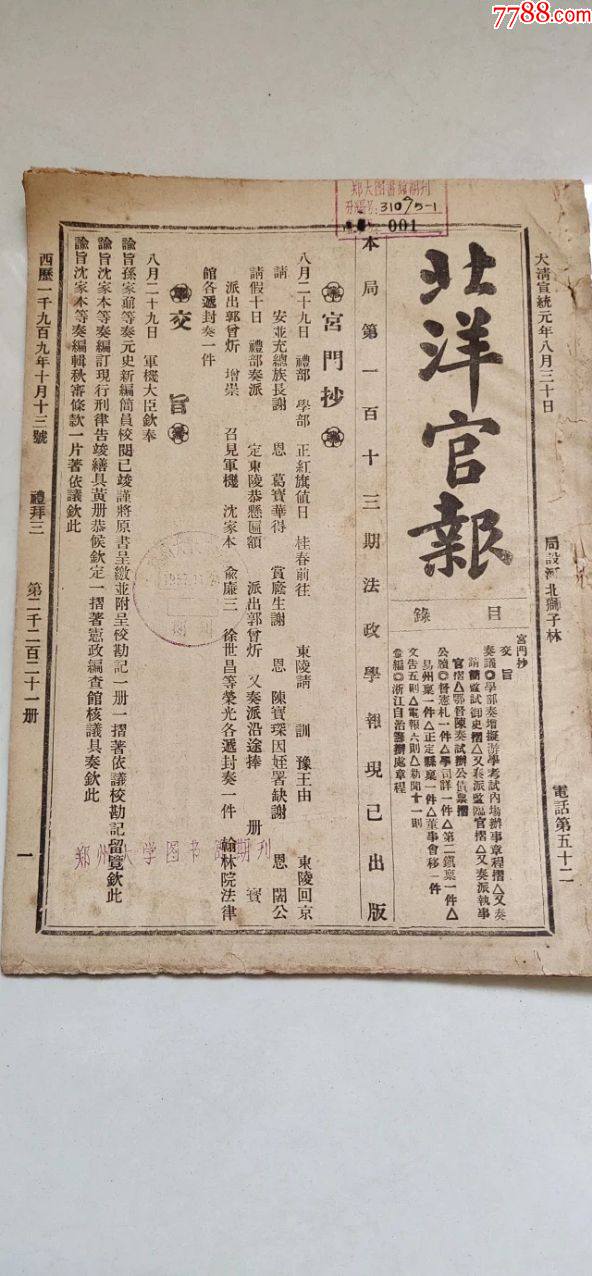 7788.com
郑大图书馆期刊
分类号:31075-1
001
大淸宣統元年八月三十日
局設河北獅子林
電話第五十二
北洋官報
目錄
宮門抄
交旨
奏議◎學部奏增擬游學考試內場辦事章程摺△又奏
請簡監試御史摺△又奏派監臨官摺△又奏派執事
官摺△鄂督陳奏試辦公債票摺
公牘◎督憲札一件△學司詳一件△第二鎭稟一件△
易州稟一件△正定縣稟一件△董事會移一件
文告五則△電報六則△新聞十一則
彙編◎浙江自治籌辦處章程
本局第一百十三期法政學報現已出版
宮門抄
八月二十九日 禮部 學部 正紅旗値日 桂春前往 東陵請 訓 豫王由 東陵回京
請 安並充總族長謝 恩 葛寶華得 賞廕生謝 恩 陳寶琛因姪署缺謝 恩 闊公
請假十日 禮部奏派 定東陵恭懸匾額 派出郭曾炘 又奏派沿途捧 册 寳
派出郭曾炘 增崇 召見軍機 沈家本 兪廉三 徐世昌等榮光各遞封奏一件 翰林院法律
館各遞封奏一件
交旨
八月二十九日 軍機大臣欽奉
諭旨孫家鼐等奏元史新編簡員校閱已竣謹將原書呈繳並附呈校勘記一册一摺著依議校勘記留覽欽此
諭旨沈家本等奏編訂現行刑律告竣繕具黃册恭候欽定一摺著憲政編查館核議具奏欽此
諭旨沈家本等奏編輯秋審條款一片著依議欽此
郑州大学图书馆期刊
西曆一千九百九年十月十三號
禮拜三
第二千二百二十一册
一